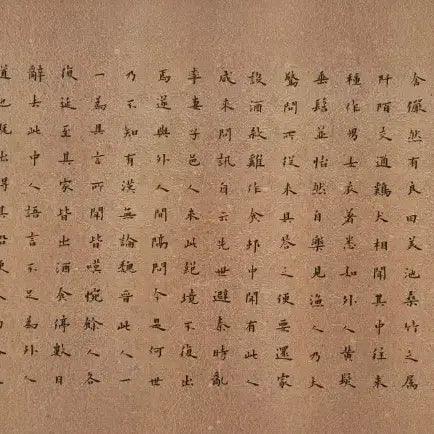 舍儼然有良田美池桑竹之屬
阡陌交通鷄犬相聞其中往来
種作男女衣著悉如外人黃髮
垂髫並怡然自樂見漁人乃大
驚問所從来具答之便要還家
設酒殺雞作食邨中聞有此人
咸来問訊自云先世避秦時亂
率妻子邑人来此絕境不復出
焉遂與外人間隔問今是何世
乃不知有漢無論魏晉此人一
一為具言所聞皆嘆惋餘人各
復延至其家皆出酒食停數日
辭去此中人語言不足為外人
道也既出得其船便